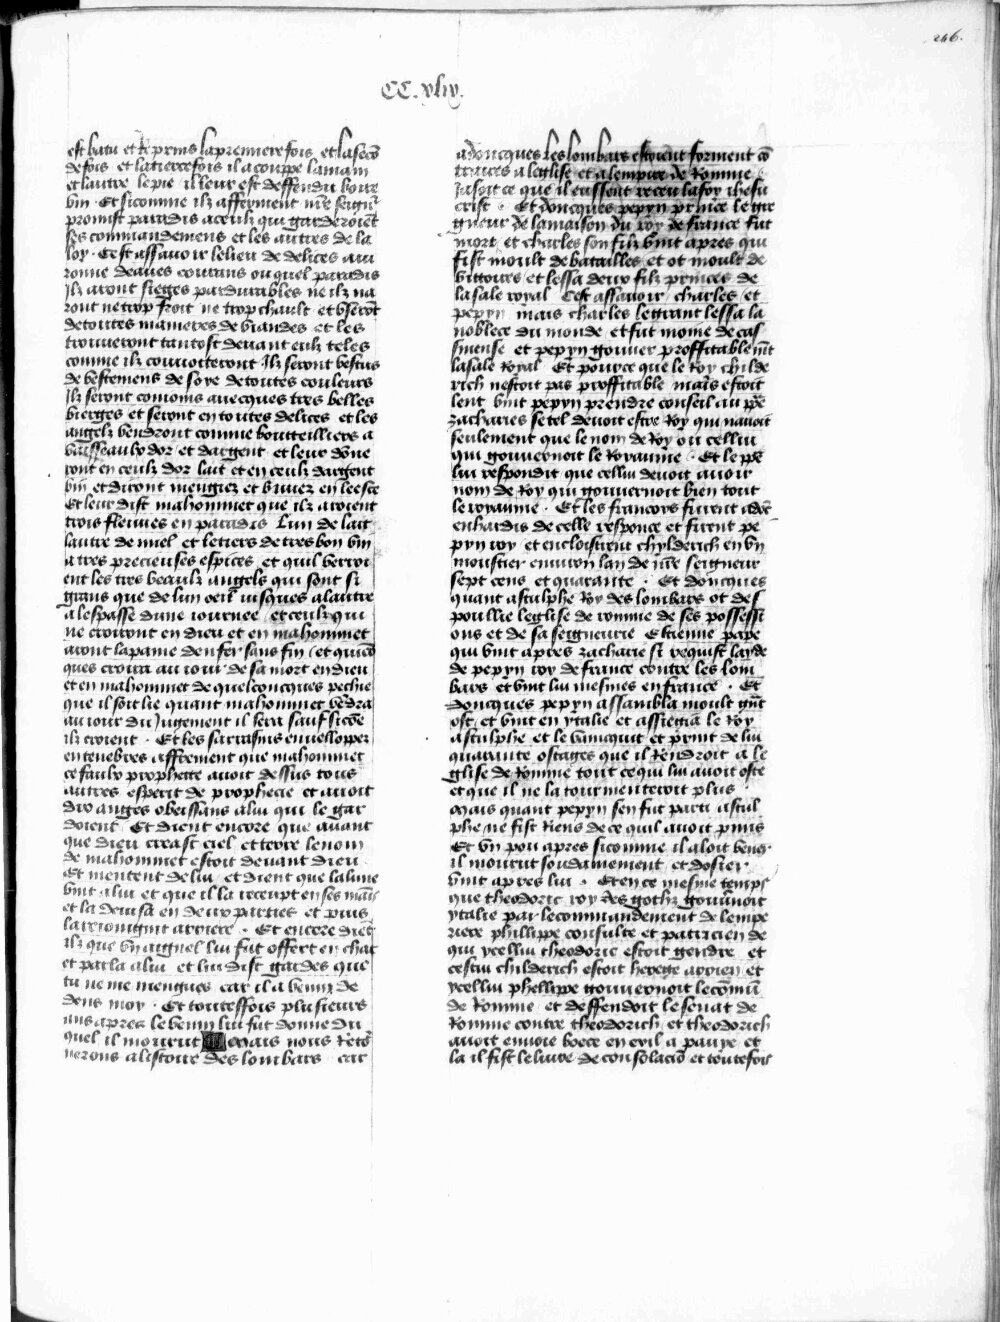 246.
CC.xliiij.
est batu et reprins la premiere fois et la secõ
de fois et la tierce fois il a couppe la main
et lautre le pie il leur est deffendu boire
vin Et si comme ilz afferment nr̃e seignr̃
promist paradis a ceulz qui garderoiẽt
ses commandemens et les autres de la
loy Cest assavoir le lieu de delices avi
ronne deaues courans ou quel paradis
Ilz aront sieges pardurables ne ilz na
ront ne trop froit ne trop chault et userõt
de toutes manieres de viandes et les
trouveront tantost devant eulz teles
comme ilz couvoiteront Ilz seront vestus
de vestemens de soye de toutes couleurs
Ilz seront conioins avecques tres belles
vierges et seront en toutes delices et les
angelz vendront comme bouteilliers a
vaisseaulx dor et dargent et leur dõne
ront en ceulz dor lait et en ceulz dargent
vin et diront mengiez et buvez en leesce
Et leur dist mahommet que ilz avoient
trois fleuves en paradis Lun de lait
lautre de miel et le tiers de tres bon vin
a tres precieuses espices et quil verroi
ent les tres beaulz angels qui sont si
grans que de lun oeil iusques a lautre
a lespasse dune iournee et ceulz qui
ne croiront en dieu et en mahommet
aront la paine denfer sans fin et quicõ
ques croira au iour de sa mort en dieu
et en mahommet de quelconcques pechie
que il soit lie quant mahommet vẽdra
au iour du Jugement il sera sauf sicõe
ilz croient Et les sarrasins envellopez
en tenebres afferment que mahommet
ce faulx prophette avoit dessus tous
autres esperit de prophecie et avoit
dix anges obeissans a lui qui le gar
doient Et dient encore que avant
que dieu creast ciel et terre le nom
de mahommet estoit devant dieu
Et mentent de lui et dient que la lune
vint a lui et que il la receupt en ses maĩs
et la devisa en deux parties et puis
la reioingnit arriere Et encore diẽt
ilz que un aignel lui fut offert en char
et parla a lui et lui dist gardes que
tu ne me mengues car il a venin de
dens moy Et toutesfois plusieurs
ans apres le venin lui fut donne du
quel il mourut Mais nous retõ
nerons a listoire des lombars car
adoncques les lombars estoient forment cõ
traires a leglise et a lempire de Romme
Jasoit ce que il eussent receu la foy ihesu
crist Et doncques pepyn prince le gre
gneur de la maison du roy de france fut
mort et charles son filz vint apres qui
fist moult de batailles et ot moult de
victoires et lessa deux filz princes de
la sale royal Cest assavoir charles et
pepyn mais charles le grant lessa la
noblece du monde et fut moine de cas
sinense et pepyn gouver proffitablemẽt
la sale Royal Et pource que le Roy childe
rich nestoit pas proffitable mais estoit
lent vint pepyn prendre conseil au pp̃e
zacharies se tel devoit estre Roy qui navoit
seulement que le nom de Roy ou cellui
qui gouvernoit le Royaume Et le pp̃e
lui respondit que cellui devoit avoir
nom de Roy qui gouvernoit bien tout
le royaume Et les francoys furent adõc
enhardis de celle responce et firent pe
pyn roy et encloistrent chylderich en un
moustier environ lan de nr̃e seigneur
sept cens et quarante Et doncques
quant astulphe Roy des lombars ot des
poullie leglise de romme de ses possessi
ons et de sa seigneurie Estienne pape
qui vint apres zacharie si requist layde
de pepyn roy de france contre les lom
bars et vint lui mesmes en france Et
doncques pepyn assambla moult grãt
ost et vint en ytalie et assiegia le Roy
astulphe et le vainquit et print de lui
quarante ostages que il Rendroit a le
glise de Romme tout ce qui lui avoit oste
et que il ne la tourmenteroit plus
Mais quant pepyn sen fut parti astul
phe ne fist Riens de ce quil avoit pmis
Et un pou apres sicomme il aloit vener
il mourut soudainement et desier
vint apres lui Et en ce mesme temps
que theodoric roy des gothz gouũnoit
ytalie par le commandement de lempe
riere phillippe consulte et patricien de
qui ycellui theodoric estoit gendre et
cestui childerich estoit herege arrien et
ycellui phellippe gouvernoit le cõmũ
de Romme et deffendoit le senat de
Romme contre theodorich et theodorich
avoit envoie boece en exil a pavye et
la il fist le livre de consolaciõ et toutefois